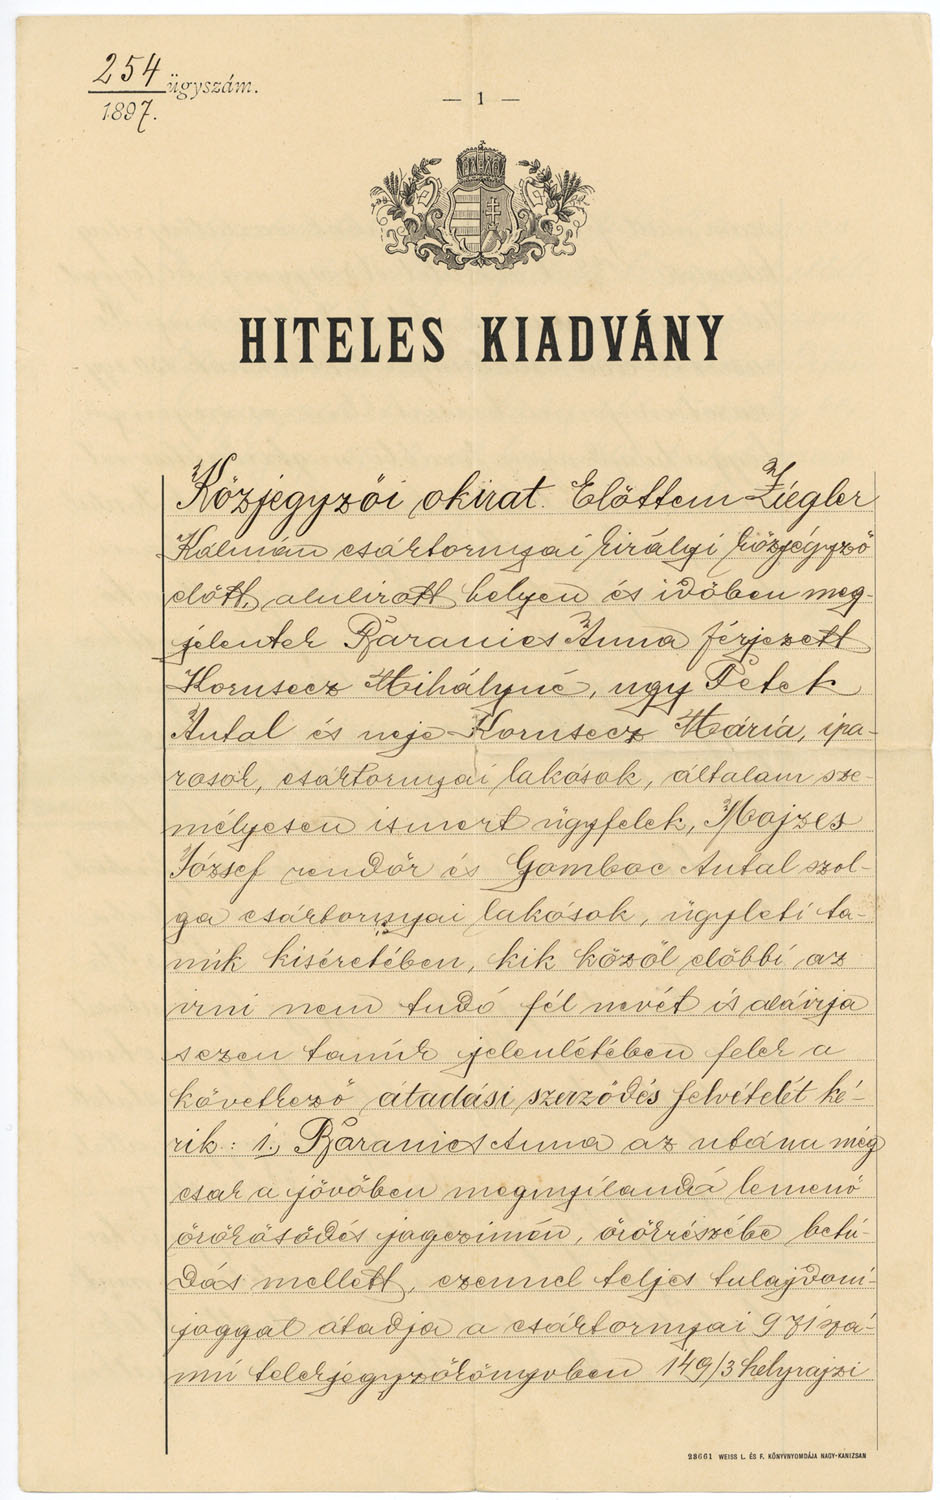 254 ügyszám.
1897.
— 1 —
HITELES KIADVÁNY
Közjegyzői okirat. Előttem Ziegler
Kálmán csáktornyai királyi közjegyző
előtt, alulirott helyen és időben meg-
jelentek Baranics Anna férjezett
Korusecz Mihályné, ugy Petek
Antal és neje Korusecz Mária, ipa-
rosok, csáktornyai lakósok, általam sze-
mélyesen ismert ügyfelek, Mojzes
József rendőr és Gomboc Antal szol-
ga csáktornyai lakósok, ügyleti ta-
núk kiséretében, kik közöl előbbi az
irni nem tudó fél nevét is aláirja
s ezen tanúk jelenlétében felek a
következő átadási szerződés felvételét ké-
rik: 1., Baranics Anna az utána még
csak a jövőben megnyilandó lemenő
örökösödés jogczimén, örökrészébe betu-
dás mellett, ezennel teljes tulajdoni-
joggal átadja a csáktornyai 971 szá-
mú telekjegyzőkönyvben 149/3 helyrajzi
28661 WEISS L. ÉS F. KÖNYVNYOMDÁJA NAGY-KANIZSAN